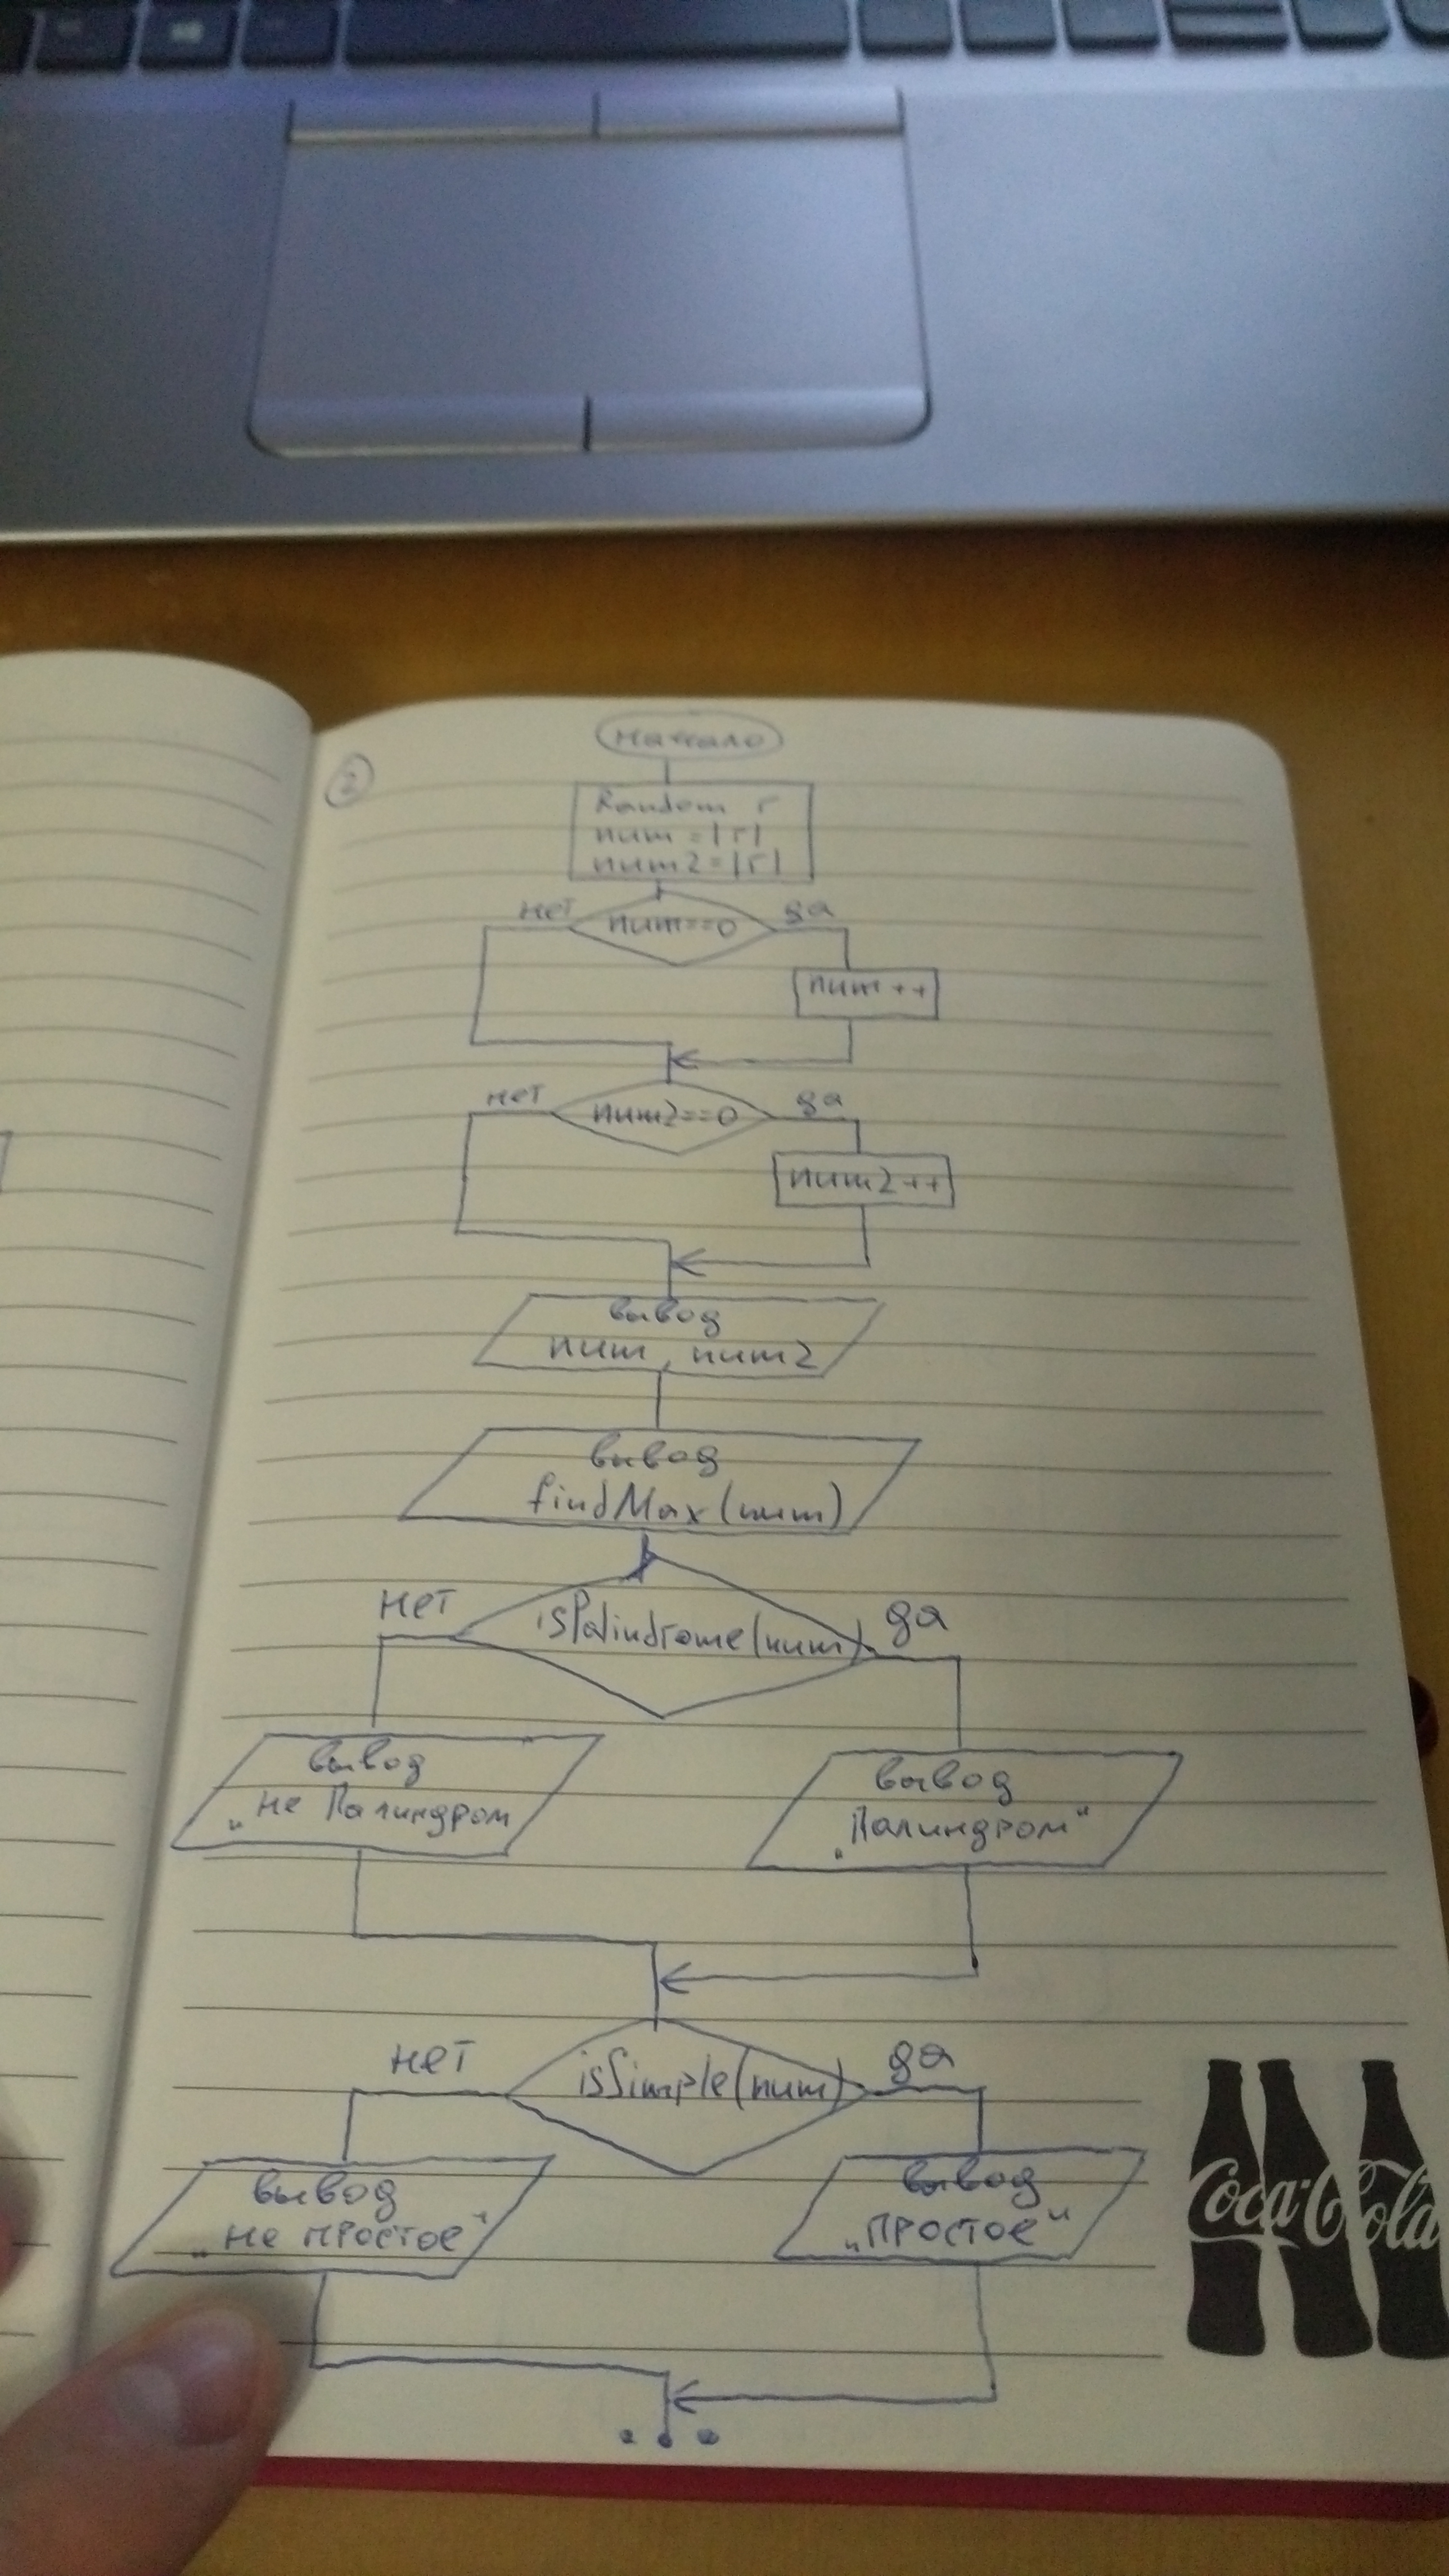 2
начало
Random r
num = |r|
num2 = |r|
нет
num==0
да
num++
нет
num2==0
да
num2++
вывод
num, num2
вывод
findMax(num)
нет
isPalindrome(num)
да
вывод
„не Палиндром
вывод
„Палиндром"
нет
isSimple(num)
да
вывод
„не простое"
вывод
„простое"
Coca-Cola
...